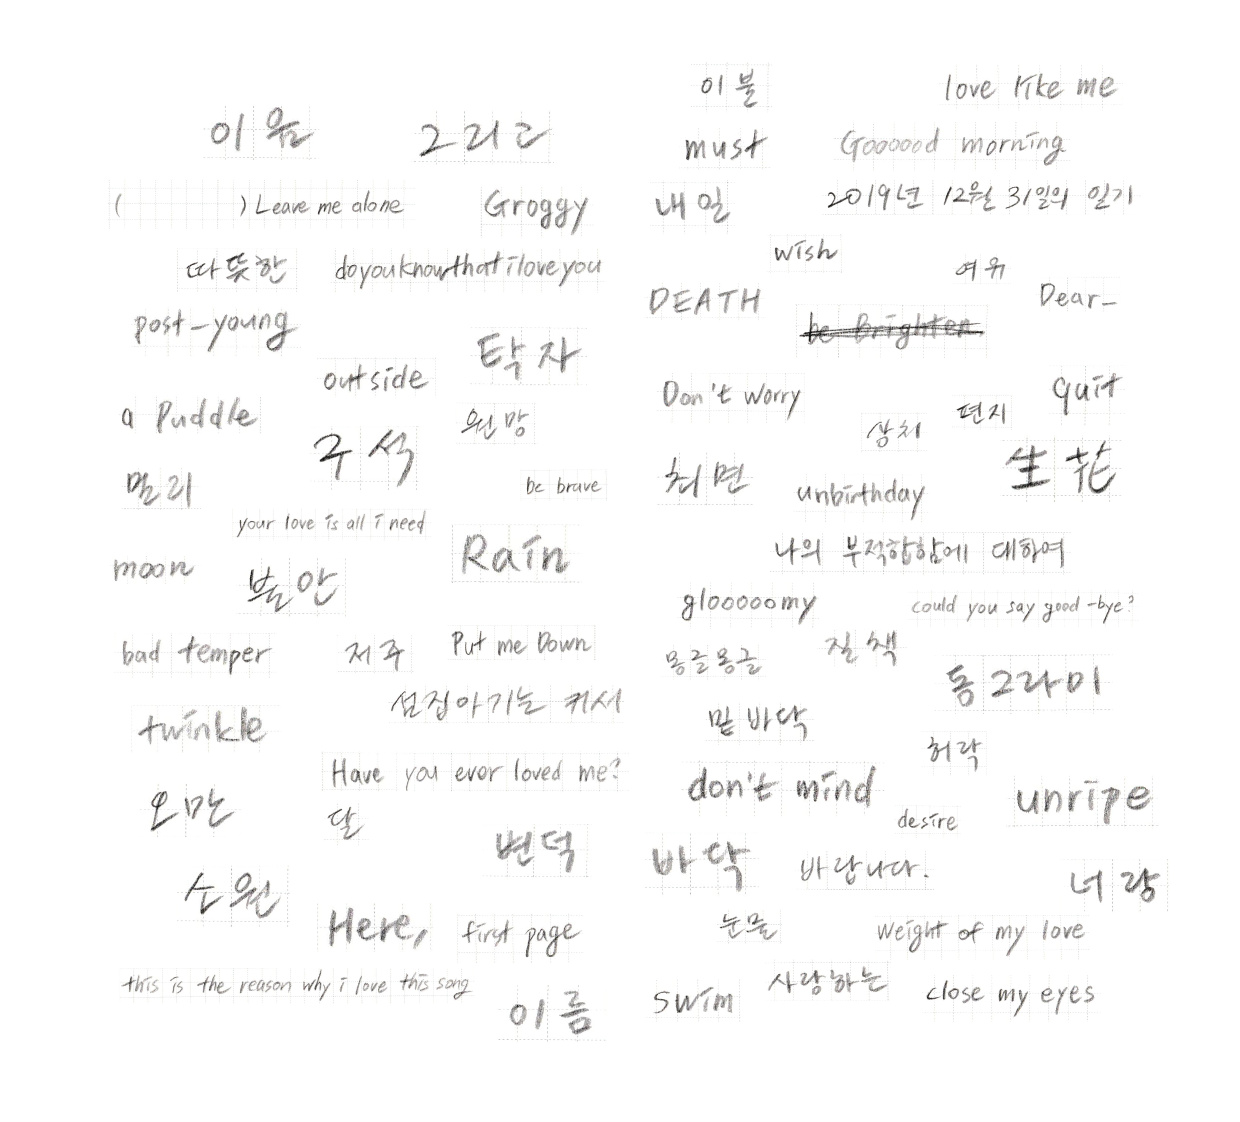 이음 그리고
( ) Leave me alone Groggy
따뜻한 doyouknowthatiloveyou
post-young
탁자
outside
a Puddle
원망
구석
멀리
be brave
your love is all i need
Rain
moon
불안
bad temper 저주 Put me Down
섬집아기는 커서
twinkle
Have you ever loved me?
오만
달
변덕
소원
Here, first page
this is the reason why i love this song
이름
이불 love like me
must Goooood morning
내일 2019년 12월 31일의 일기
wish
여유
DEATH Dear-
be Brighten
Don't worry quit
편지
상처
최면 生花
unbirthday
나의 부적합함에 대하여
glooooomy could you say good-bye?
몽글몽글 질책
동그라미
밑바닥
허락
don't mind unripe
desire
바닥 바랍니다.
너랑
눈물 Weight of my love
swim 사랑하는 close my eyes